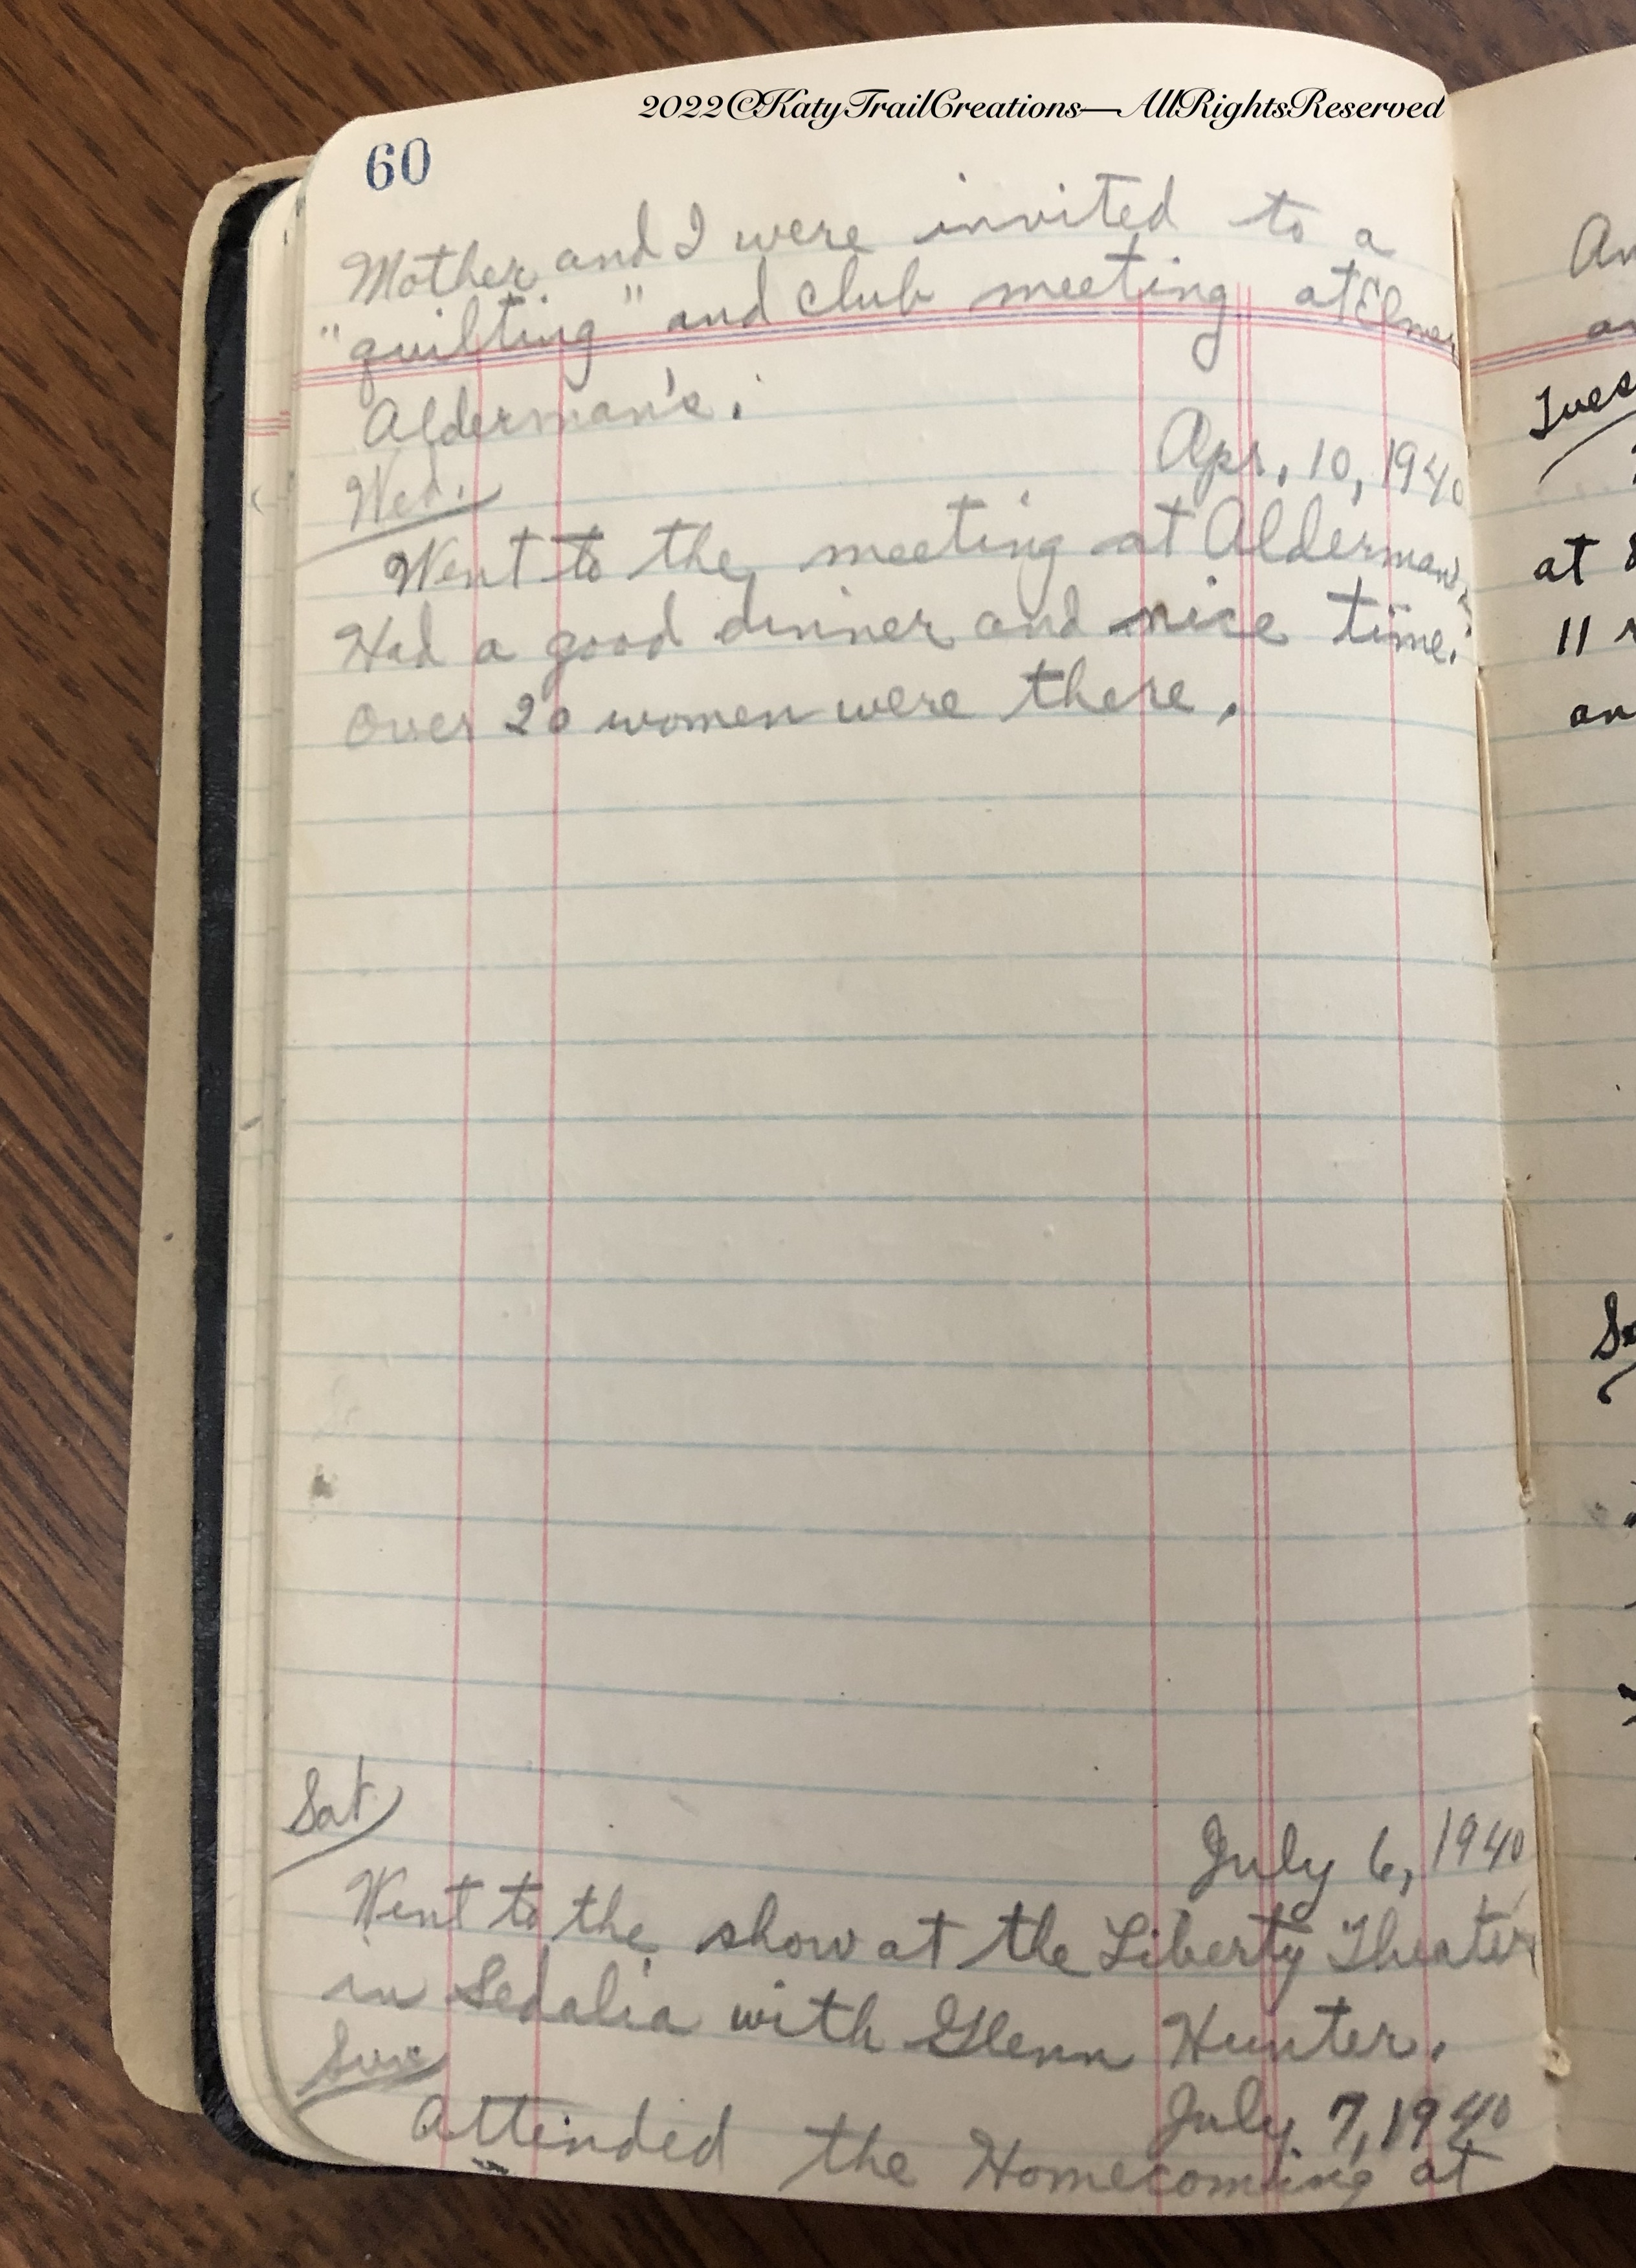 2022©KatyTrailCreations—AllRightsReserved
60
Mother and I were invited to a
"quilting" and club meeting at Elmer
Alderman's.
Apr. 10, 1940
Wed.
Went to the meeting at Alderman's
Had a good dinner and nice time.
Over 20 women were there.
Sat
July 6, 1940
Went to the show at the Liberty Theater
in Sedalia with Glenn Hunter.
Sun
July 7, 1940
Attended the Homecoming at
Tues
at
11